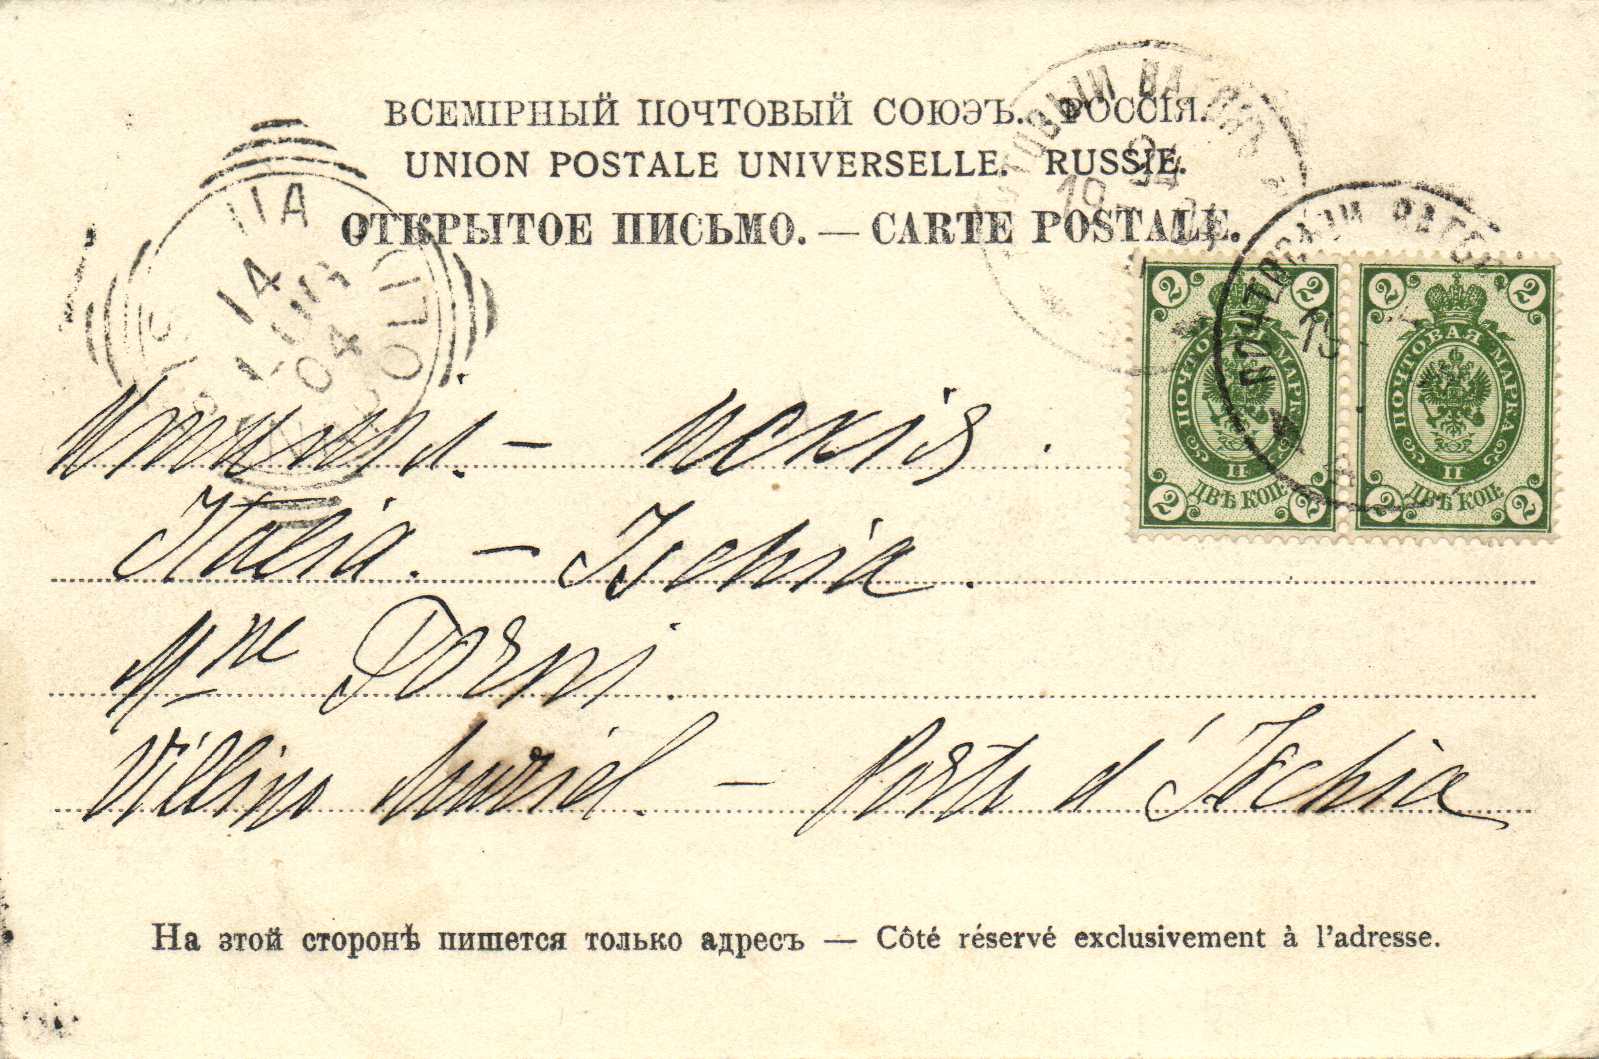 ВСЕМІРНЫЙ ПОЧТОВЫЙ СОЮЗЪ. РОССІЯ.
UNION POSTALE UNIVERSELLE. RUSSIE.
ОТКРЫТОЕ ПИСЬМО. — CARTE POSTALE.
14
LUG
04
NAPOLI
ПОЧТОВЫЙ ВАГОНЪ
19
ПОЧТОВЫЙ ВАГОНЪ
19
2 2
ПОЧТОВАЯ МАРКА
II
2 ДВѢ КОП. 2
2 2
ПОЧТОВАЯ МАРКА
II
2 ДВѢ КОП. 2
Италія. – Искія.
Italia. – Ischia.
Mme Dorni.
Villino Muriel. – Porto d'Ischia
На этой сторонѣ пишется только адресъ — Côté réservé exclusivement à l'adresse.